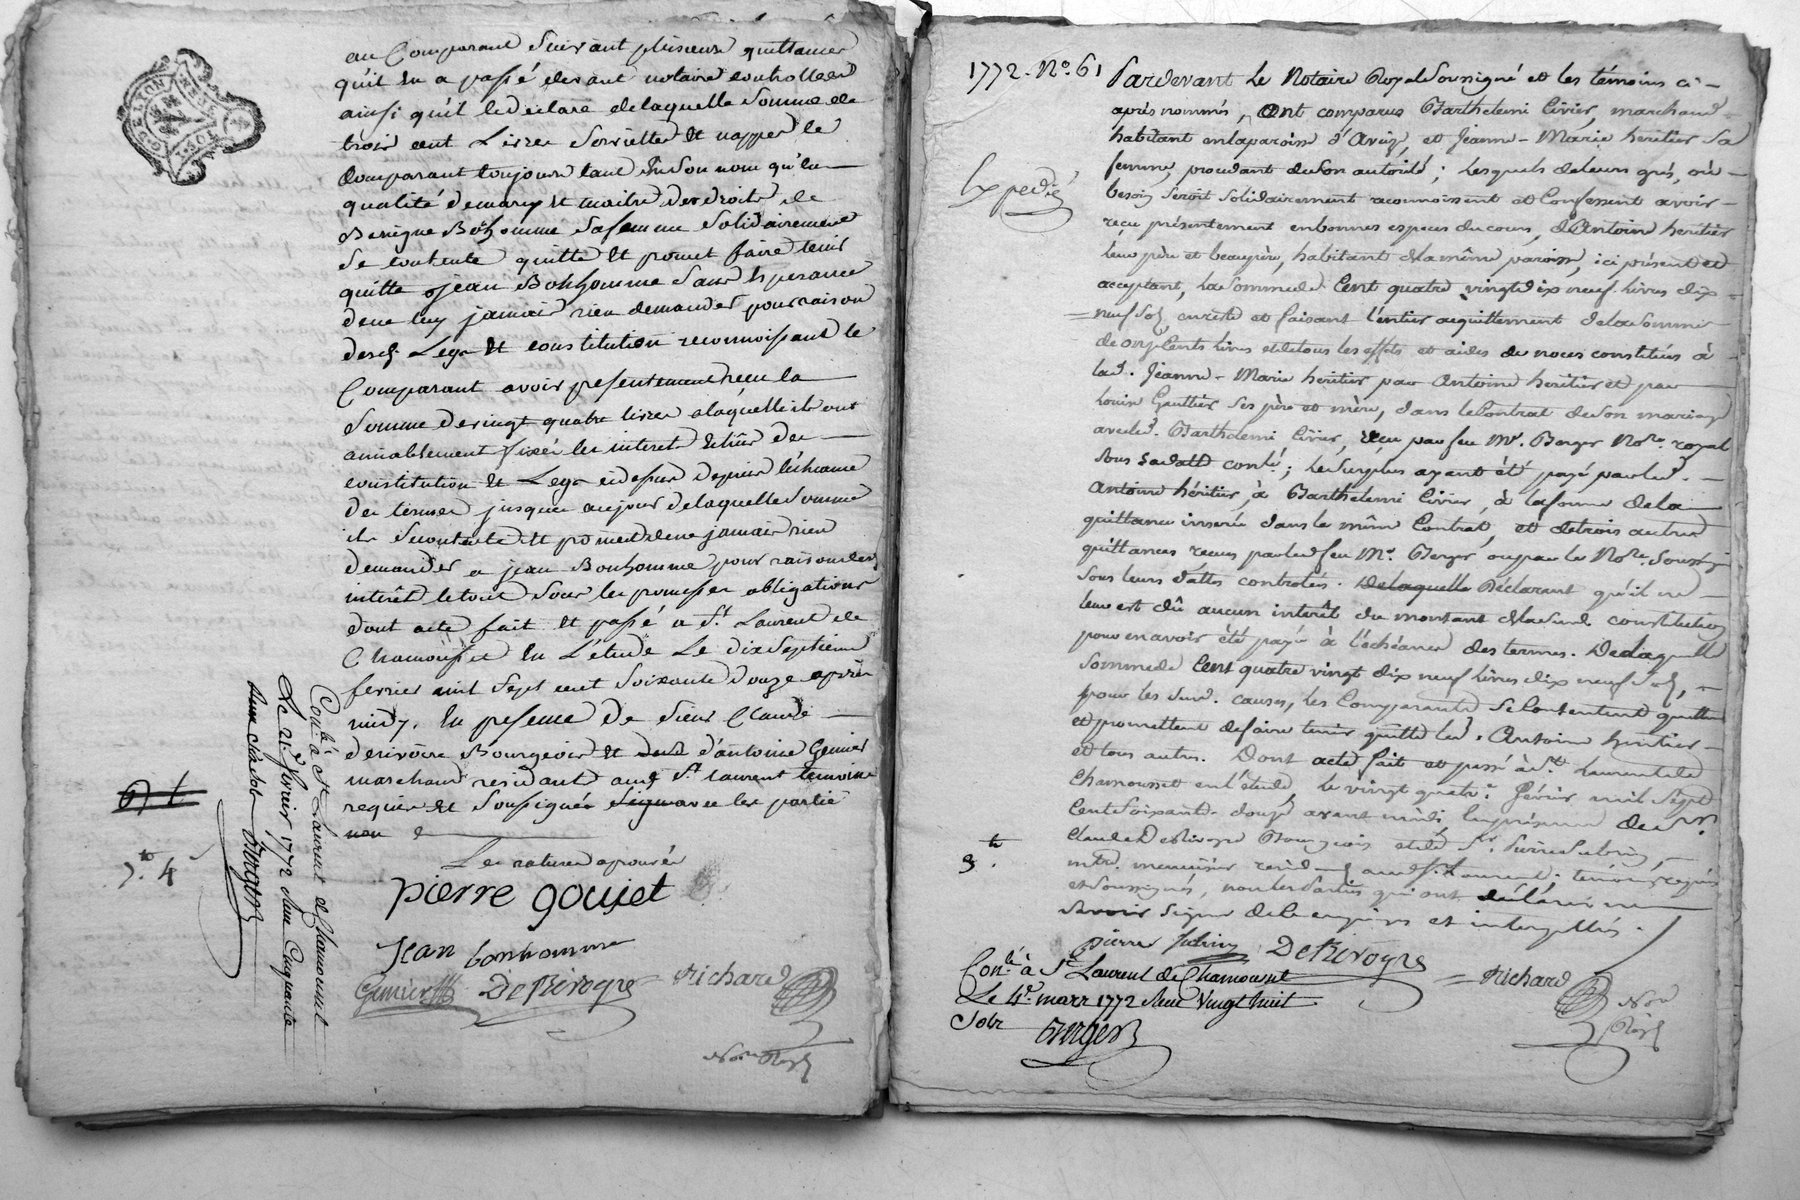 au Comparant Suivant plusieurs quittances
qu'il en a passé devant notaire controllées
ainsi qu'il le declare de laquelle Somme de
trois cent Livres Serviettes et nappes le
Comparant toujours tant En Son nom qu'en
qualité de mary et maitre des droits de
Benigne Bonhomme Sa femme Solidairement
Se contente quitte et promet faire tenir
quitte Jean Bonhomme Sans Esperance
de ne luy jamais rien demander pour raison
desd. Legs et constitution reconnoissant le
Comparant avoir presentement reçu la
Somme de vingt quatre livres a laquelle ils ont
amiablement fixé les interet
constitution et Legs depuis l'echeance
des termes jusques aujour de laquelle Somme
il Se contente et promet de ne jamais rien
demander a jean Bonhomme pour raison des
interêt le tout Sous les promesses obligations
dont acte fait et passé a St. Laurent de
Chamousset En L'étude Le dix Septieme
fevrier mil Sept cent Soixante douze après
midy. En presence de Sieur Claude
derivoire Bourgeois et d'antoine Genier
marchand residant aud. St. laurent temoins
requis et Soussignés avec les partie
non
Les ratures aprouvés
pierre goujet
Jean bonhomme
DeRivoyre Richard
Nore. Royl.
Conlé. à St. Laurent de Chamousset
Le 21e. fevrier 1772 Reçu Cinquante
Berger
7.tt 4
G. DE LYON
1772. No. 61
Expedié
Pardevant Le Notaire Royal Soussigné et les témoins ci-
après nommés, Ont comparus Barthelemi Civier, marchand
habitant en la paroisse d'Aveiz, et Jeanne-Marie heritier Sa
femme, procedant de Son autorité; Lesquels de leurs grés, où
besoin Seroit Solidairement reconnoissent et Confessent avoir
reçu présentement en bonnes especes du cours, d'Antoine heritier
leur père et beaupère, habitant de la même paroisse, ici présent et
acceptant, la Somme de Cent quatre vingt dix neuf livres dix
neuf Sols, en reste et faisant l'entier acquittement de la Somme
de onze Cents livres et de tous les effets et aides de noces constitués à
lad. Jeanne-Marie heritier par Antoine heritier et par
Louise Gaultier Ses père et mère, dans le Contrat de Son mariage
avec led. Barthelemi Civier, reçu par feu Me. Berger Nore. royal
Sous Sa datte conlé.; Le Surplus ayant été payé par led.
Antoine héritier, à Barthelemi Civier, à la forme de la
quittance inserée dans le même Contrat, et de trois autres
quittances reçues par led. feu Me. Berger, ou par le Nore. Soussigné
Sous leurs dattes controlés. Delaquelle Déclarant qu'il ne
leur est dû aucun interêt du montant de lad. constitution
pour en avoir été payé à l'échéance des termes. De laquelle
Somme de Cent quatre vingt dix neuf livres dix neuf Sols,
pour les Sud. causes, les Comparants Se Contentent quittent
et promettent de faire tenir quitte led. Antoine heritier
et tous autres. Dont acte fait et passé à St. Laurent de
Chamousset en l'étude, le vingt quatre. Février mil Sept
Cent Soixante-douze avant midi, En présence de Sr.
Claude DeRivoyre Bourgeois et de Sr. Pierre
mtre. menuisier resid. aud. St. Laurent, témoins requis
et Soussignés, non les parties qui ont déclaré ne
Savoir Signer de ce enquises et interpellées.
3.tt
pierre DeRivoyre
Richard
Nore.
Royl.
Conlé. à St. Laurent de Chamousset
Le 4e. mars 1772 Reçu Vingt huit
Sols Berger